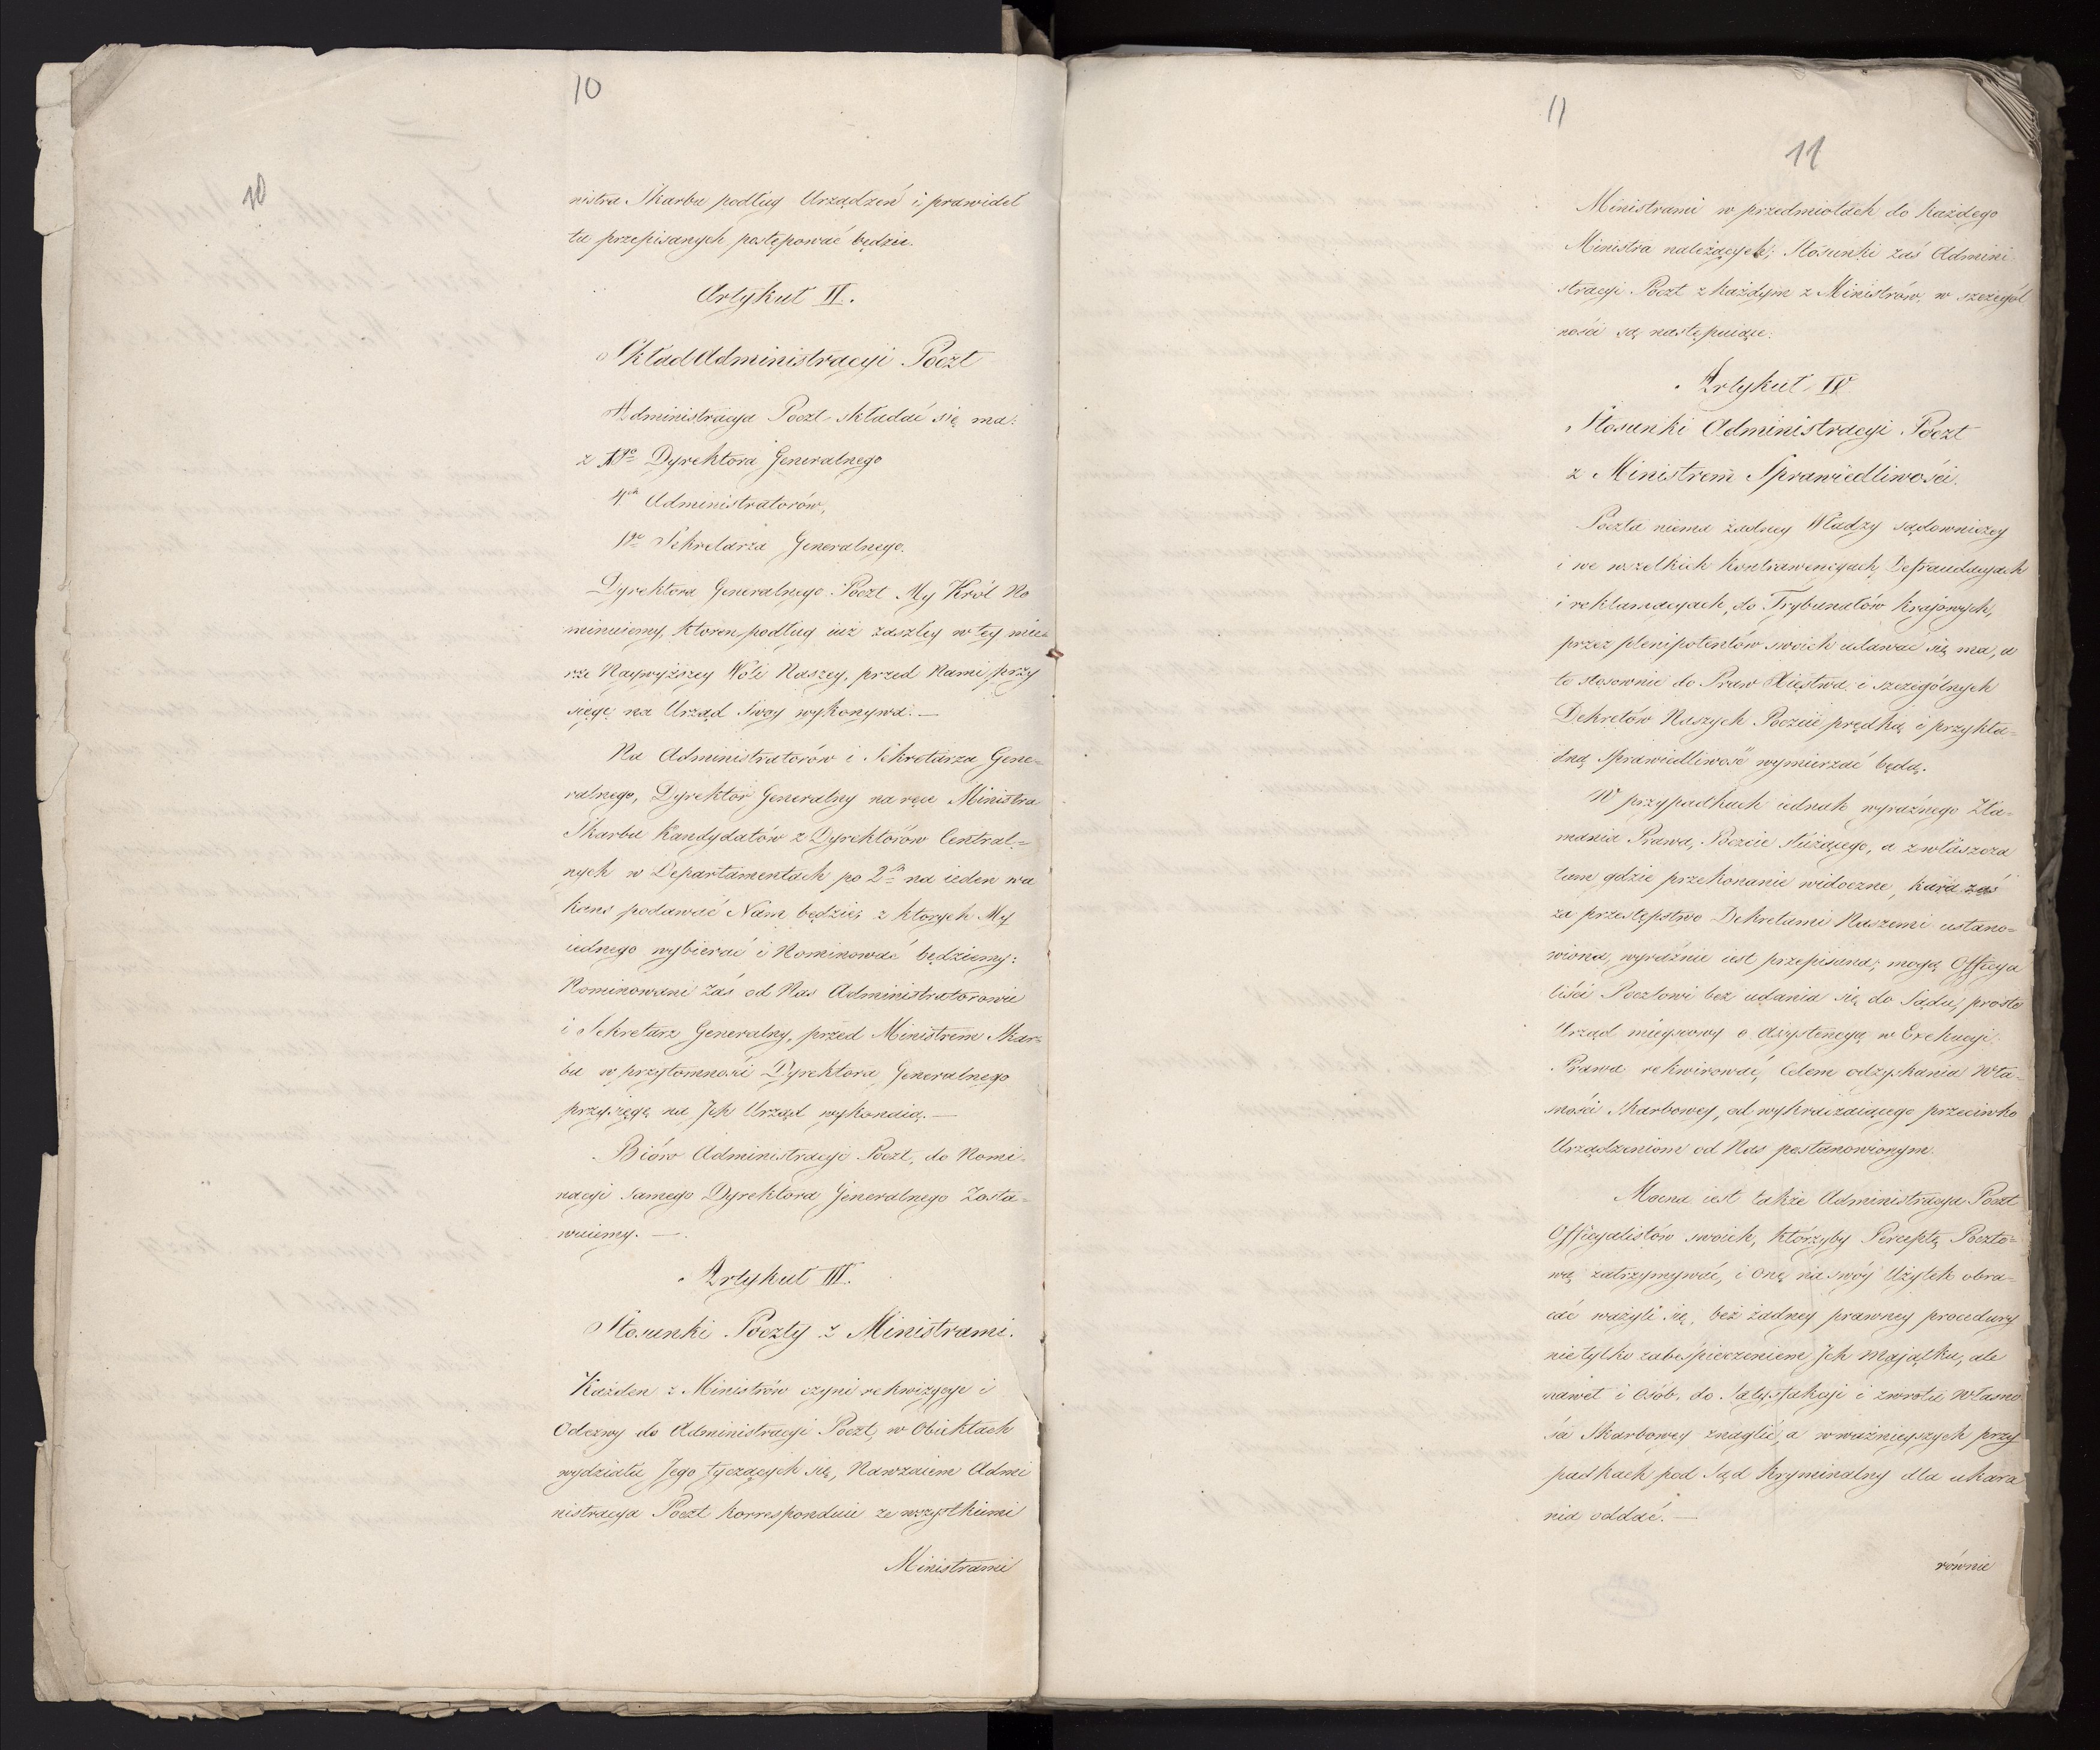 10
10
nistra Skarbu podług Urządzeń i prawideł
tu przepisanych postępować będzie.
Artykuł II.
Skład Administracyi Poczt
Administracya Poczt składać się ma:
z 1go Dyrektora Generalnego
4ch Administratorów,
1go Sekretarza Generalnego.
Dyrektora Generalnego Poczt My Król No
minuiemy, ktoren podług iuż zaszłey w tey mie
rze Naywyższey Woli Naszey, przed Nami przy
sięgę na Urząd Swoy wykonywa. —
Na Administratorów i Sekretarza Gene=
ralnego, Dyrektor Generalny na ręce Ministra
Skarbu Kandydatów z Dyrektorów Central=
nych w Departamentach po 2ch na ieden wa
kans podawać Nam będzie, z ktorych My
iednego wybierać i Nominować będziemy:
Nominowani zaś od Nas Administratorowie
i Sekretarz Generalny, przed Ministrem Skar=
bu w przytomności Dyrektora Generalnego
przysięgę na Jch Urząd wykonaią. —
Bióro Administracyi Poczt, do Nomi=
nacyi samego Dyrektora Generalnego Zosta=
wuiemy. —
Artykuł III.
Stosunki Poczty z Ministrami.
Każden z Ministrów czyni rekwizycye i
Odezwy do Administracyi Poczt, w Obiektach
wydziału Jego tyczących się, Nawzaiem Admi
nistracya Poczt korresponduie ze wszystkiemi
Ministrami
11
11
Ministrami w przedmiotach do każdego
Ministra należących; Stosunki zaś Admini
stracyi Poczt z każdym z Ministrów, w szczegól
ności są następuiące:
Artykuł IV
Stosunki Administracyi Poczt
z Ministrem Sprawiedliwości.
Poczta niema żadney Władzy sądowniczey
i we wszelkich kontrawencyach, Defraudacyach
i reklamacyach, do Trybunałów krajowych,
przez plenipotentów swoich udawać się ma, a
te stosownie do Praw Xięstwa, i szczególnych
Dekretów Naszych Poczcie prędką i przykła=
dną Sprawiedliwość wymierzać będą.
W przypadkach iednak wyraźnego Zła=
mania Prawa, Poczcie służącego, a zwłaszcza
tam gdzie przekonanie widoczne, kara zaś
za przestępstwo Dekretami Naszemi ustano=
wiona, wyraźnie iest przepisana; mogą Officya
liści Pocztowi bez udania się do Sądu, prosto
Urząd mieyscowy o Asystencyą w Exekucyi
Prawa rekwirować, Celem odzyskania Wła
sności Skarbowey, od wykraczaiącego przeciwko
Urządzeniom od Nas postanowionym.
Mocna iest także Administracya Poczt
Officyalistów swoich, którzyby Perceptę Poczto=
wą zatrzymywać, i onę na swóy Użytek obra=
cać ważyli się, bez żadney prawney procedury
nie tylko zabespieczeniem Jch Majątku, ale
nawet i Osób, do Satysfakcyi i zwrotu Własno
ści Skarbowey znaglić, a w ważnieyszych przy
padkach pod Sąd Kryminalny dla ukara
nia oddać. —
równie